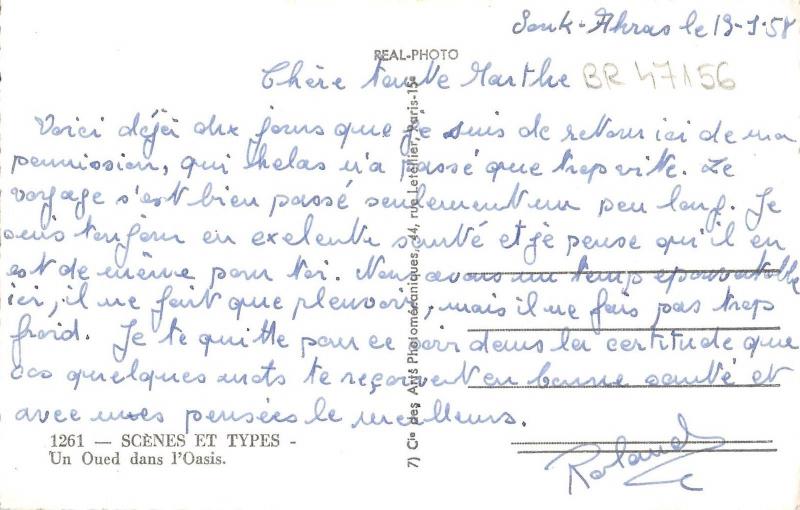 Souk-Ahras le 19-1.58
REAL-PHOTO
Chère tante Marthe BR 47156
Voici déjà dix jours que je suis de retour ici de ma
permission, qui helas n'a passé que trop vite. Le
voyage s'est bien passé seulement un peu long. Je
suis toujour en exelente santé et je pense qu'il en
est de même pour toi. Nous avons un temp epouvantable
ici, il ne fait que pleuvoir, mais il ne fais pas trop
froid. Je te quitte pour ce soir dans la certitude que
ces quelques mots te reçoivent en bonne santé et
avec mes pensées le meilleurs.
Roland
1261 — SCÈNES ET TYPES -
Un Oued dans l'Oasis.
7) Cie des Arts Photomécaniques, 44, rue Letellier, Paris-15e